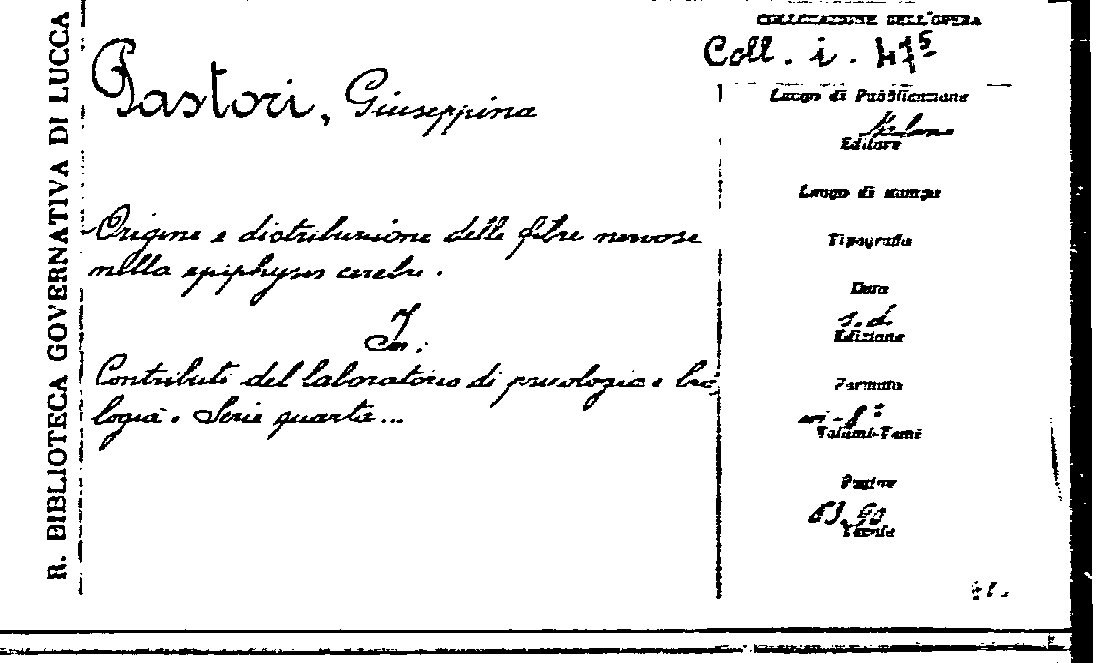 R. BIBLIOTECA GOVERNATIVA DI LUCCA
COLLOCAZIONE DELL'OPERA
Coll. i. 47⁵
Pastori, Giuseppina
Origine e distribuzione delle fibre nervose
nella epiphysis cerebri.
In:
Contributi del laboratorio di psicologia e bio
logia. Serie quarta...
Luogo di Pubblicazione
Milano
Editore
Luogo di stampa
Tipografia
Data
s.d.
Edizione
Formato
in-8°
Volumi-Tomi
Pagine
Tavole